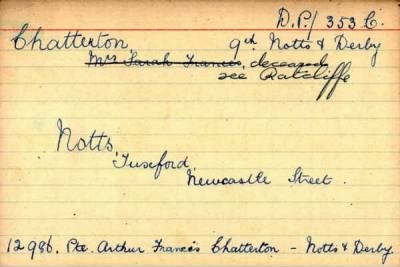 D.P./ 353 C.
Chatterton, 9th Notts & Derby
Mrs Sarah Frances, deceased
see Ratcliffe
Notts,
Tuxford,
Newcastle Street.
12986. Pte. Arthur Francis Chatterton - Notts & Derby.